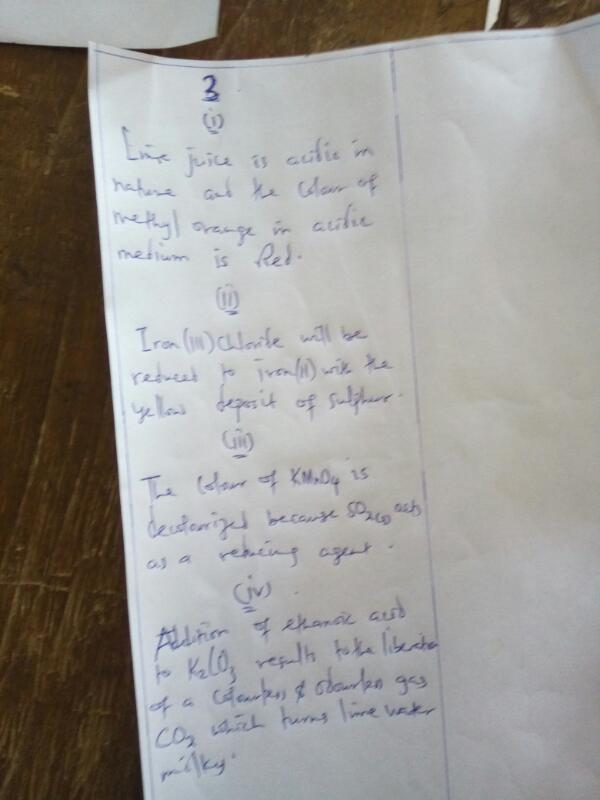 3
(i)
Lime juice is acidic in
nature and the colour of
methyl orange in acidic
medium is Red.
(ii)
Iron(III) Chloride will be
reduced to iron(II) with the
yellow deposit of sulphur.
(iii)
The Colour of KMnO4 is
decolourized because SO2(g) acts
as a reducing agent.
(iv)
Addition of ethanoic acid
to K2CO3 results to the liberation
of a colourless & odourless gas
CO2 which turns lime water
milky.